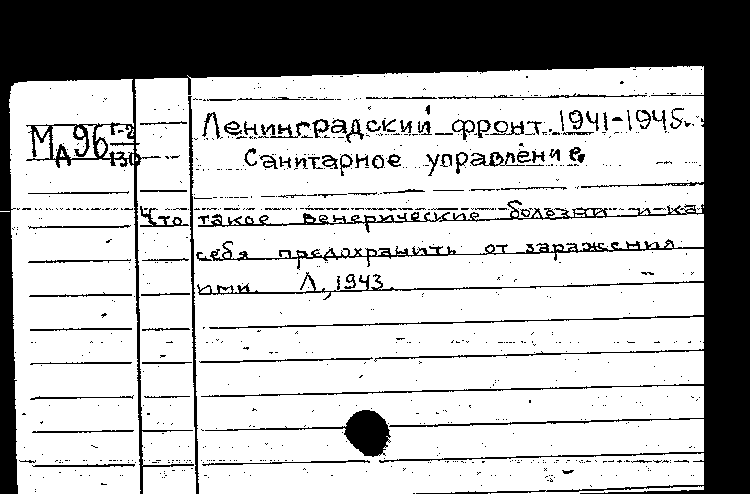 Мд96 Г-2/130
Ленинградский фронт. 1941-1945.
Санитарное управление.
Что такое венерические болезни и ка
себя предохранить от заражения
ими. Л., 1943.